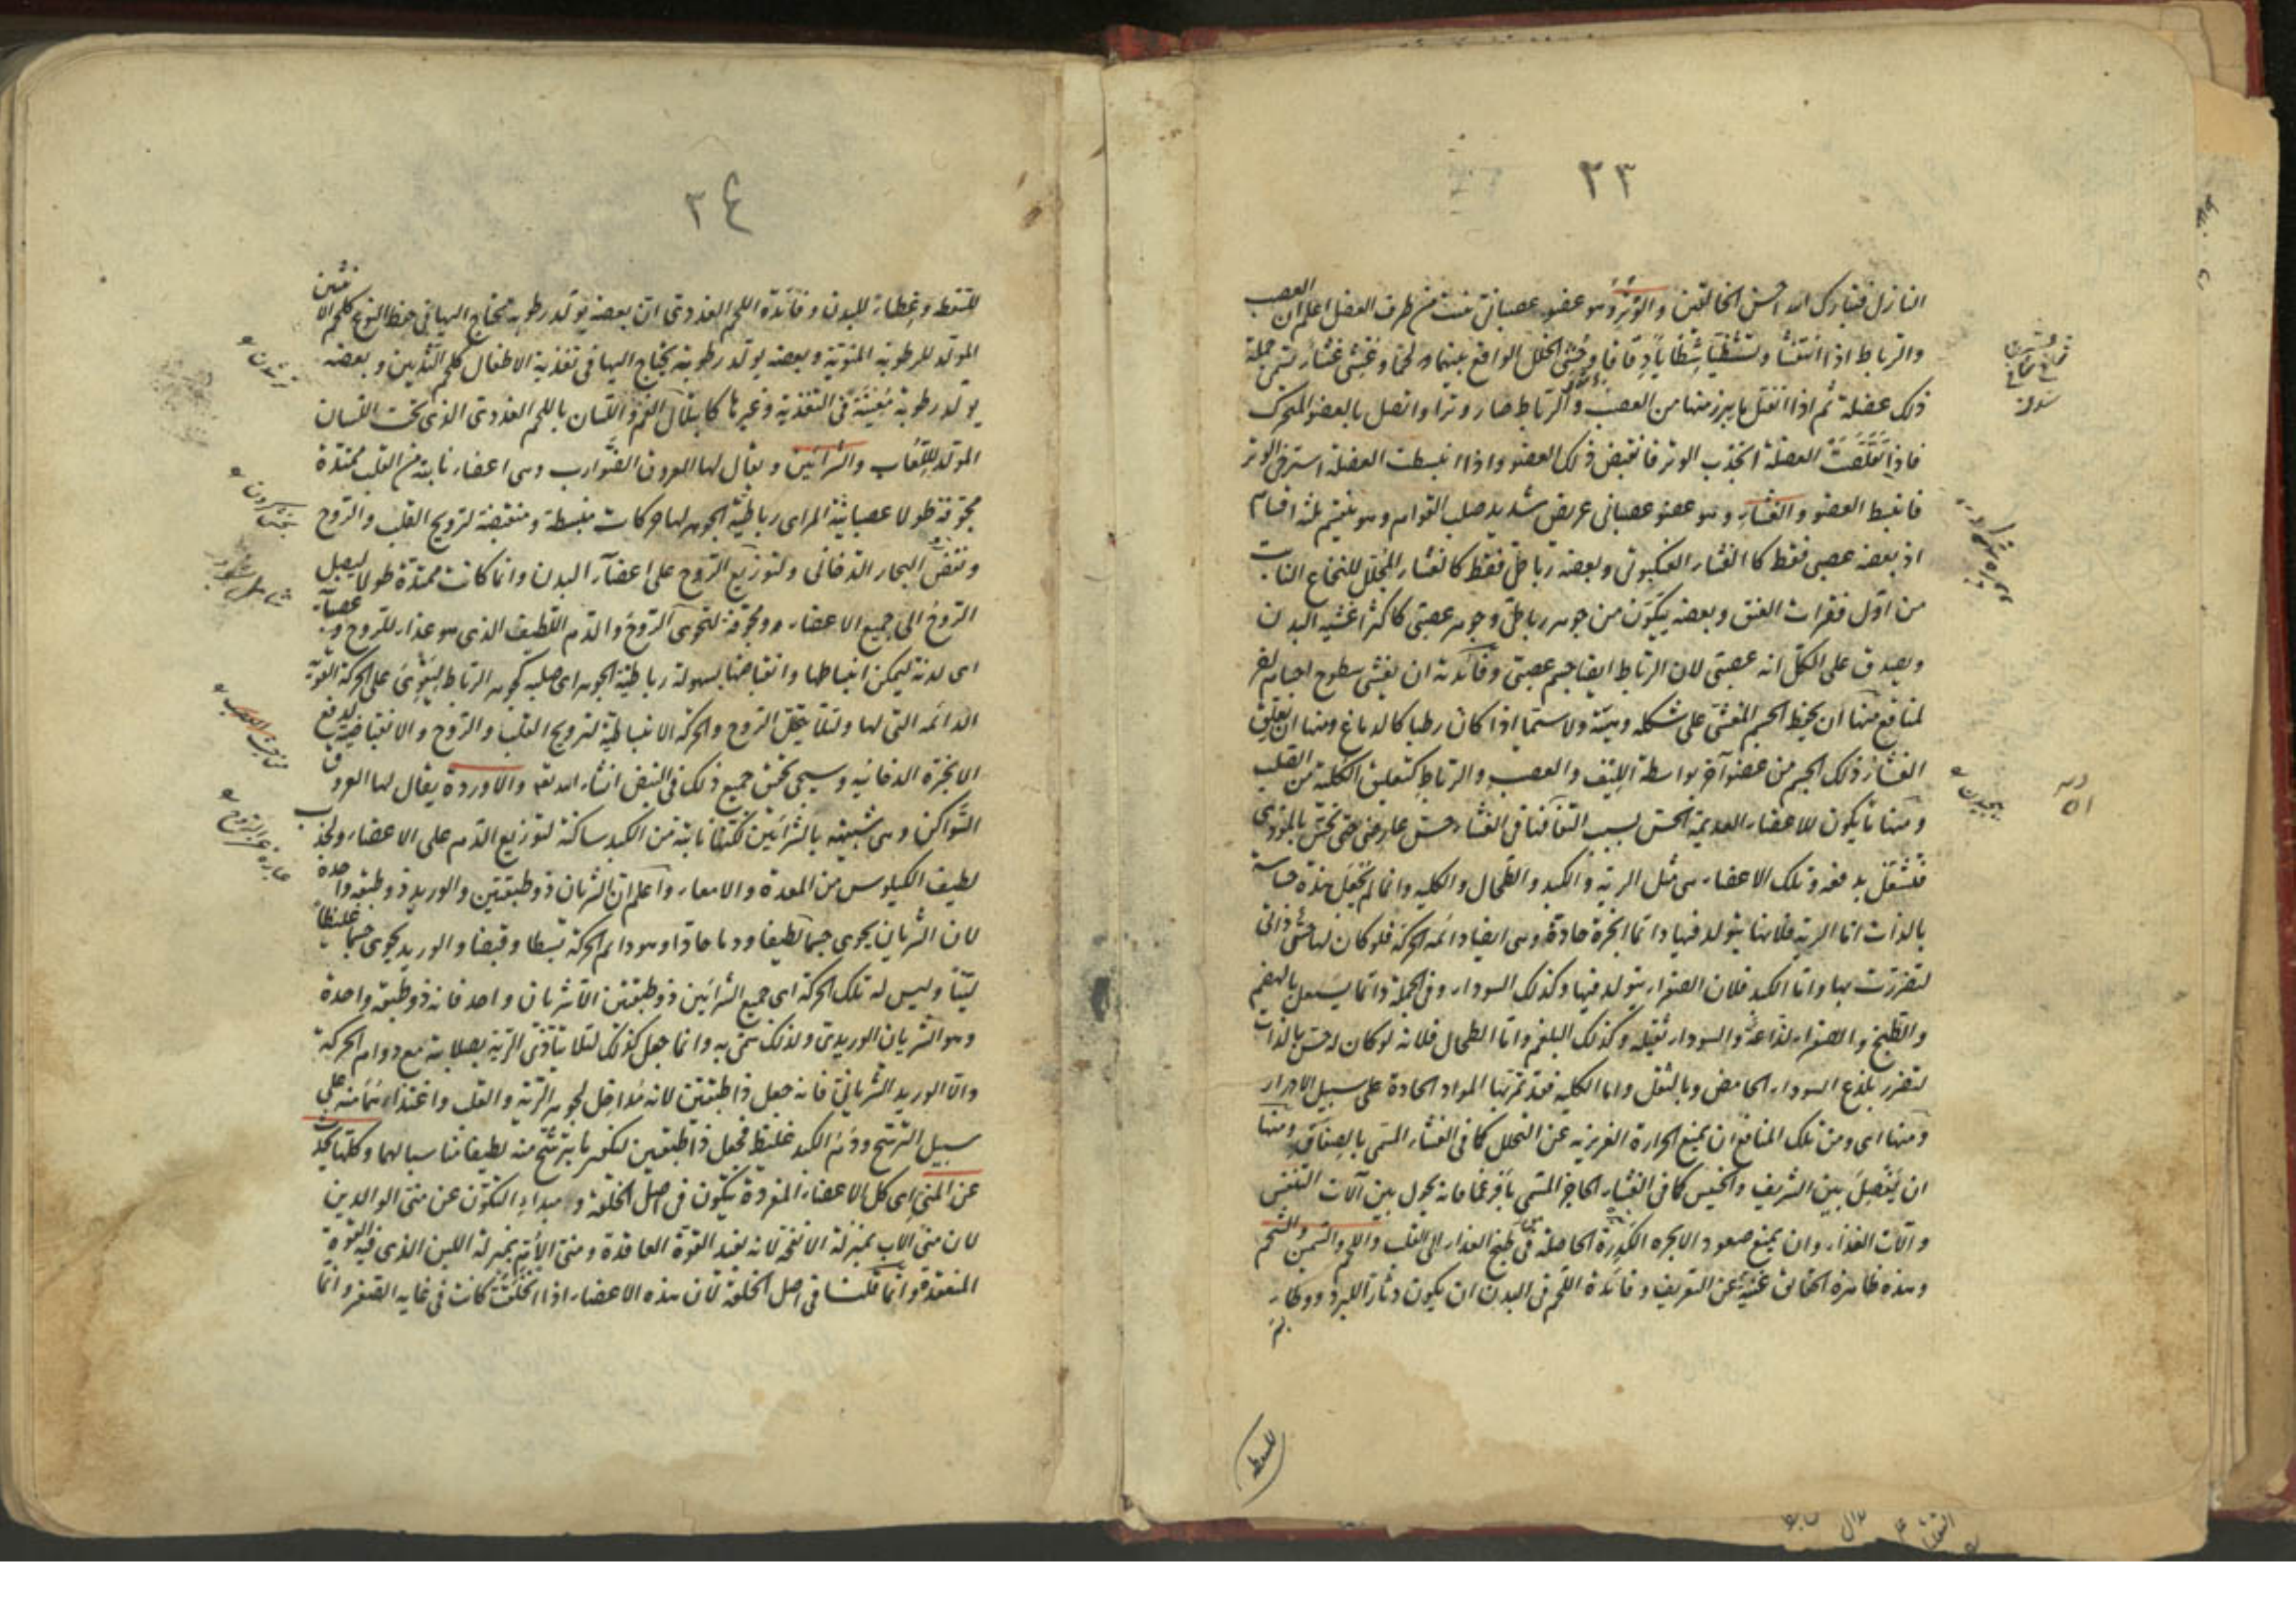 ٣٣
النازل فتبارك الله احسن الخالقين والوتر وهو عضو عصبانى تنبت من طرف العضل اعلم ان العصب
والرباط اذا انتفشا وتشظيا شظايا دقاقا وحشى الخلل الواقع بينهما لحما وغشى غشاء تسمى جملة
ذلك عضلة ثم اذا انفتل ما يبرز منها من العصب والرباط صار وترا واتصل بالعضو المتحرك
فاذا تقلصت العضلة انجذب الوتر فانقبض ذلك العضو واذا انبسطت العضلة استرخى الوتر
فانبسط العضو والغشاء وهو عضو عصبانى عريض شديد صلب القوام وهو ينقسم ثلثة اقسام
اذ بعضه عصبى فقط كالغشاء العنكبوتى وبعضه رباطى فقط كالغشاء المجلل للنخاع النابت
من اول فقرات العنق وبعضه يتكون من جوهر رباطى وجوهر عصبى كاكثر اغشية البدن
ويصدق على الكل انه عصبى لان الرباط ايضا جسم عصبى وفائدته ان يغشى سطوح اجسام اخر
لمنافع منها ان يحفظ الجسم المغشى على شكله وهيئته ولا سيما اذا كان رطبا كالدماغ ومنها ان يعلق
الغشاء ذلك الجسم من عضو آخر بواسطة الليف والعصب والرباط كتعليق الكلية من الصلب
ومنها ما يكون للاعضاء العديمة الحس بسبب التفافها فى الغشاء حس عارضى حتى تحس بالموذى
فتشتغل بدفعه وتلك الاعضاء هى مثل الرية والكبد والطحال والكلية وانما لم تجعل هذه حساسة
بالذات اما الرية فلانها يتولد فيها دائما ابخرة حادة وهى ايضا دائمة الحركة فلو كان لها حس ذاتى
لتضررت بها واما الكبد فلان الصفراء يتولد فيها وكذلك السوداء وفى الجملة دائما يشتغل بالهضم
والطبخ والصفراء لذاعة والسوداء ثقيلة وكذلك البلغم واما الطحال فلانه لو كان له حس بالذات
لتضرر بلذع السوداء الحامض وبالثقل واما الكلية فقد تمر بها المواد الحادة على سبيل الادرار
ومنها اى ومن تلك المنافع ان يمنع الحرارة الغريزية عن التحلل كما فى الغشاء المسمى بالصفاق ومنها
ان يفصل بين الشريف والخسيس كما فى الغشاء الحاجز المسمى بافرغما فانه يحول بين آلات التنفس
وآلات الغذاء وان يمنع صعود الابخرة الكدرة الحاصلة فى طبخ الغذاء الى القلب واللحم والسمن والشحم
وهذه ظاهرة الحقائق غنية عن التعريف وفائدة اللحم فى البدن ان يكون دثارا للبرد ووطاء
للسقطة
٣٤
للسقطة وغطاء للبدن وفائدة اللحم الغددى ان بعضه يولد رطوبة تحتاج اليها فى حفظ النوع كلحم الانثيين
المولد للرطوبة المنوية وبعضه يولد رطوبة يحتاج اليها فى تغذية الاطفال كلحم الثديين وبعضه
يولد رطوبة معينة فى التغذية وغيرها كابتلال الفم واللسان باللحم الغددى الذى تحت اللسان
المولد للعاب والشرائين ويقال لها العروق الضوارب وهى اعضاء نابتة من القلب ممتدة
مجوفة طولا عصبانية المراى رباطية الجوهر لها حركات منبسطة ومنقبضة لترويح القلب والروح
ونفض البخار الدخانى ولتوزيع الروح على اعضاء البدن وانما كانت ممتدة طولا ليصل
الروح الى جميع الاعضاء ومجوفة لتحوى الروح والدم اللطيف الذى هو غذاء للروح وعصبانية
اى لدنة ليمكن انبساطها وانقباضها بسهولة رباطية الجوهر اى صلبة كجوهر الرباط ليقوى على الحركة القوية
الدائمة التى لها ولئلا يتحلل الروح والحركة الانبساطية لترويح القلب والروح والانقباضية لدفع
الابخرة الدخانية وسيجى تحقيق جميع ذلك فى النبض انشاء الله تعه والاوردة يقال لها العروق
السواكن وهى شبيهة بالشرائين لكنها نابتة من الكبد ساكنة لتوزيع الدم على الاعضاء ولجذب
لطيف الكيلوس من المعدة والامعاء واعلم ان الشريان ذو طبقتين والوريد ذو طبقة واحدة
لان الشريان يحوى جسما لطيفا ودما حادا وهو دائم الحركة بسطا وقبضا والوريد يحوى جسما غليظا
لينا وليس له تلك الحركة اى جميع الشرائين ذو طبقتين الا شريان واحد فانه ذو طبقة واحدة
وهو الشريان الوريدى ولذلك سمى به وانما جعل كذلك لئلا يتاذى الرية بصلابته مع دوام الحركة
واما الوريد الشريانى فانه جعل ذا طبقتين لانه مداخل لجوهر الرية والقلب واغتذاءهما منه على
سبيل الترشح ودم الكبد غليظ فجعل ذا طبقتين ليكون ما يترشح منه لطيفا مناسبا لهما وكلها يحدث
عن المنى اى كل الاعضاء المفردة يتكون فى اصل الخلقة ومبداء التكون عن منى الوالدين
لان منى الاب بمنزلة الانفحة لانه يفيد القوة العاقدة ومنى الام بمنزلة اللبن الذى فيه القوة
المنعقدة وانما قلنا فى اصل الخلقة لان هذه الاعضاء اذا انخلقت كانت فى غاية الصغر وانما